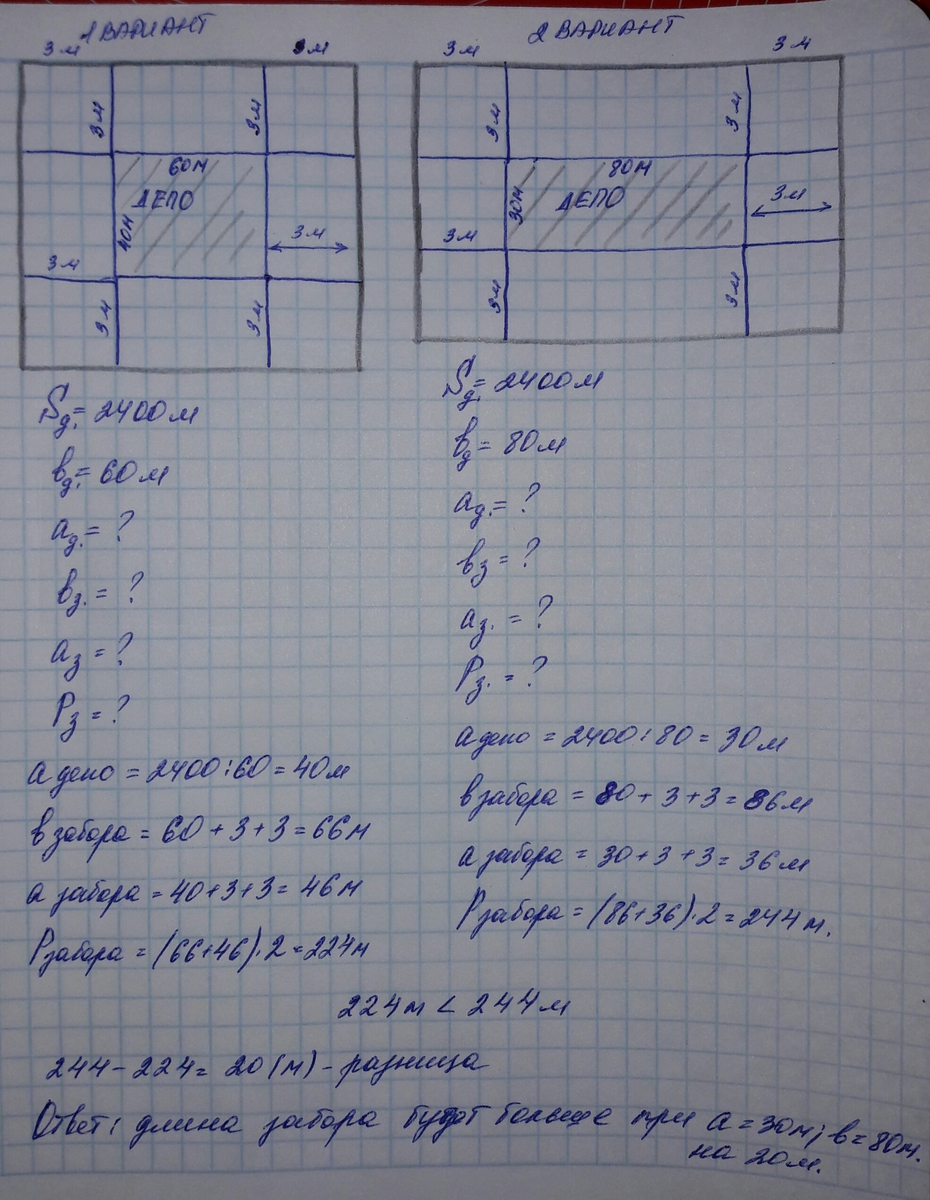 1 ВАРИАНТ
3 м
3 м
3 м
3 м
60 м
ДЕПО
40 м
3 м
3 м
3 м
3 м
Sд. = 2400 м
вд. = 60 м
ад. = ?
вз. = ?
аз = ?
Рз = ?
а депо = 2400 : 60 = 40 м
в забора = 60 + 3 + 3 = 66 м
а забора = 40 + 3 + 3 = 46 м
Р забора = (66 + 46) · 2 = 224 м
2 ВАРИАНТ
3 м
3 м
3 м
3 м
80 м
ДЕПО
30 м
3 м
3 м
3 м
3 м
Sд. = 2400 м
вд = 80 м
ад. = ?
вз = ?
аз. = ?
Рз. = ?
а депо = 2400 : 80 = 30 м
в забора = 80 + 3 + 3 = 86 м
а забора = 30 + 3 + 3 = 36 м
Р забора = (86 + 36) · 2 = 244 м.
224 м < 244 м
244 - 224 = 20 (м) - разница
Ответ: длина забора будет больше при а = 30 м; в = 80 м.
на 20 м.